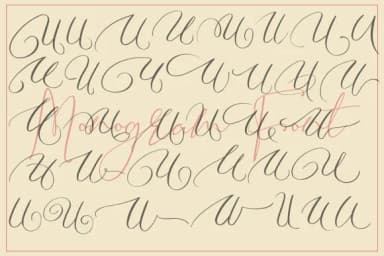 U U U U U U U U U
U U U U U U U U
U U U U U U
Monogram Font
U U U U U U
U U U U U U U